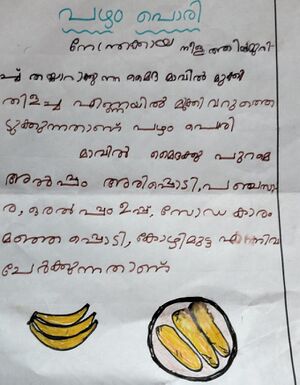 പഴം പൊരി
നേന്ത്രക്കായ നീളത്തിൽമുറി-
ച്ച് തയ്യാറാക്കുന്ന മൈദ മാവിൽ മുക്കി
തിളച്ച എണ്ണയിൽ മുക്കി വറുത്തെ
ടുക്കുന്നതാണ് പഴം പൊരി
മാവിൽ മൈദക്കു പുറമെ
അൽപ്പം അരിപ്പൊടി, പഞ്ചസാ
ര, ഒരൽപ്പം ഉപ്പ്, സോഡ കാരം
മഞ്ഞപ്പൊടി, കോഴിമുട്ട എന്നിവ
ചേർക്കുന്നതാണ്